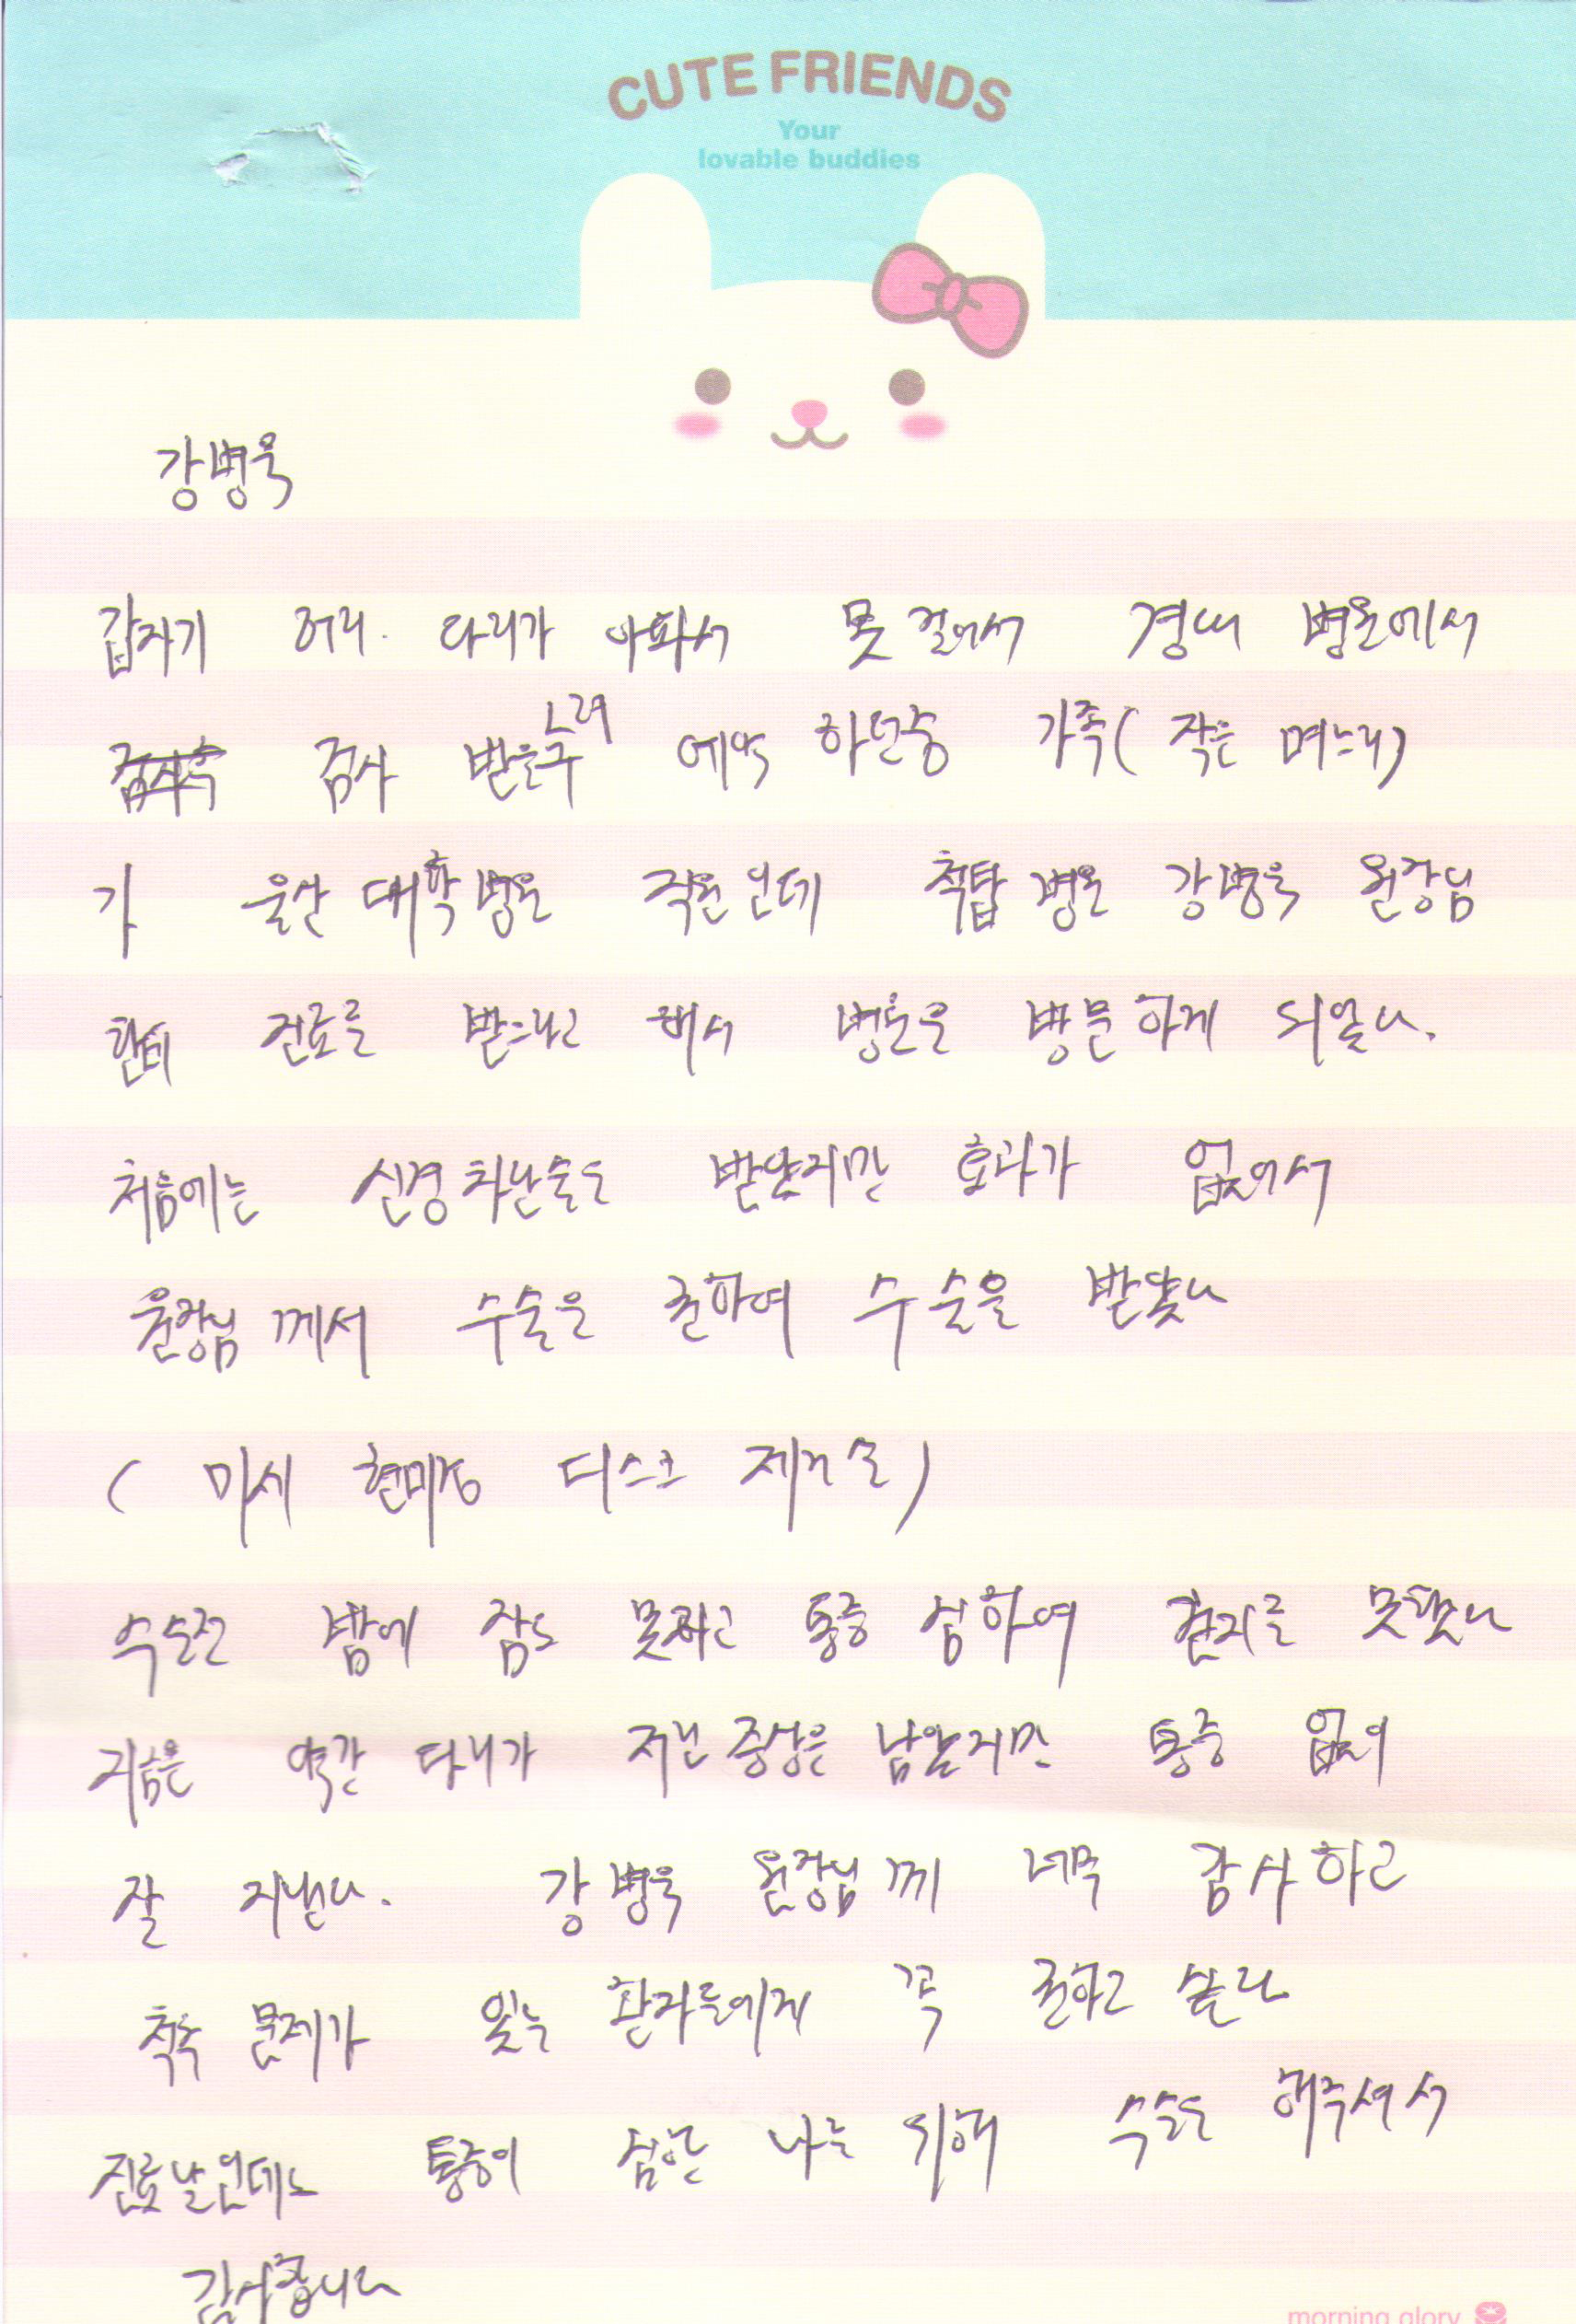 CUTE FRIENDS
Your
lovable buddies
강병욱
갑자기 허리. 다리가 아파서 못 걸어서 경대 병원에서
검사 받으려 예약 하던중 가족( 작은 며느리)
가 울산 대학병원 직원인데 척탑 병원 강병욱 원장님
한테 진료를 받으라고 해서 병원을 방문하게 되었다.
처음에는 신경차단술도 받았지만 효과가 없어서
원장님 께서 수술을 권하여 수술을 받았다
( 미세 현미경 디스크 제거술 )
수술전 밤에 잠도 못자고 통증 심하여 걷지를 못했다
지금은 약간 다리가 저린 증상은 남았지만 통증 없이
잘 지낸다. 강병욱 원장님께 너무 감사하고
척추 문제가 있는 환자들에게 꼭 권하고 싶다
진료날인데도 통증이 심한 나를 위해 수술도 해주셔서
감사합니다
morning glory